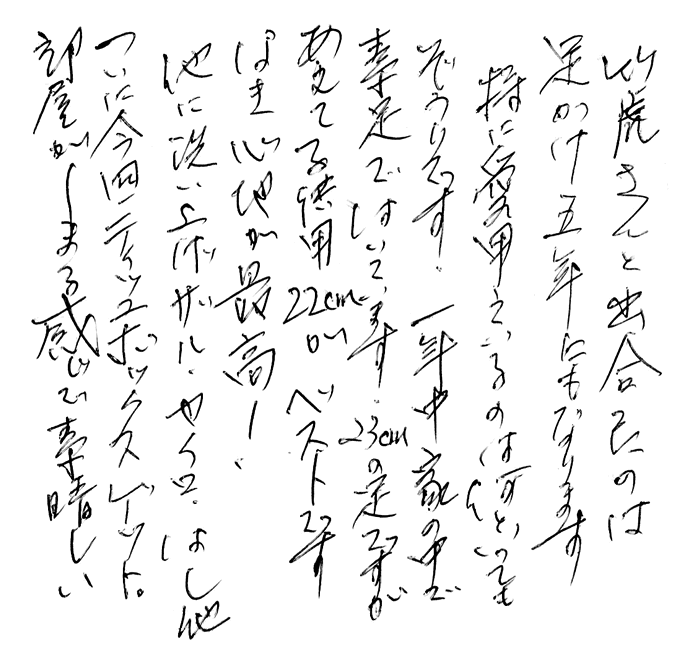 竹虎さんと出合たのは
足かけ五年にもなります
特に愛用しているのは何といっても
ぞうりです。一年中家の中で
素足ではいています。23cmの足ですが
あえて子供用22cmがベストです
はき心地が最高！
他に洗い上げザル、やくロ、はし他
ついに今回ティッシュボックスゲット。
部屋がしまる感じで素晴しい